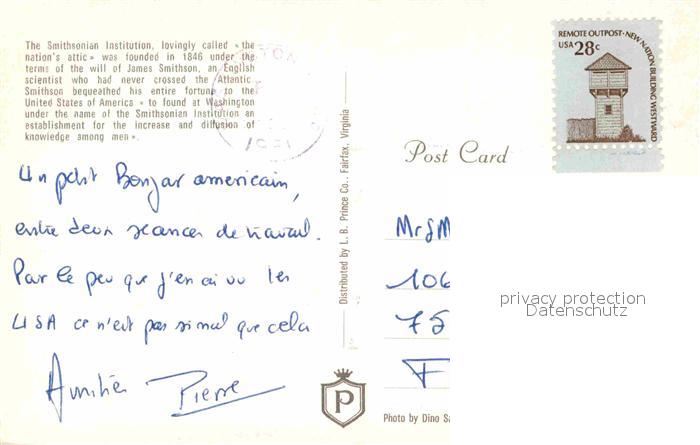 The Smithsonian Institution, lovingly called «the
nation's attic» was founded in 1846 under the
terms of the will of James Smithson, an English
scientist who had never crossed the Atlantic.
Smithson bequeathed his entire fortune to the
United States of America « to found at Washington
under the name of the Smithsonian Institution an
establishment for the increase and diffusion of
knowledge among men ».
Un petit Bonjour americain,
entre deux seances de travail.
Par le peu que j'en ai vu les
USA ce n'est pas si mal que cela
Amitiés Pierre
Distributed by L. B. Prince Co., Fairfax, Virginia
P
Post Card
REMOTE OUTPOST · NEW NATION BUILDING WESTWARD
USA 28c
106
75
F
privacy protection
Datenschutz
Photo by Dino